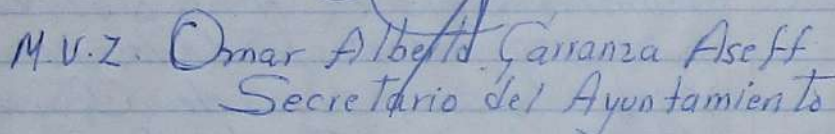 M.V.Z. Omar Alberto Carranza Aseff
Secretario del Ayuntamiento